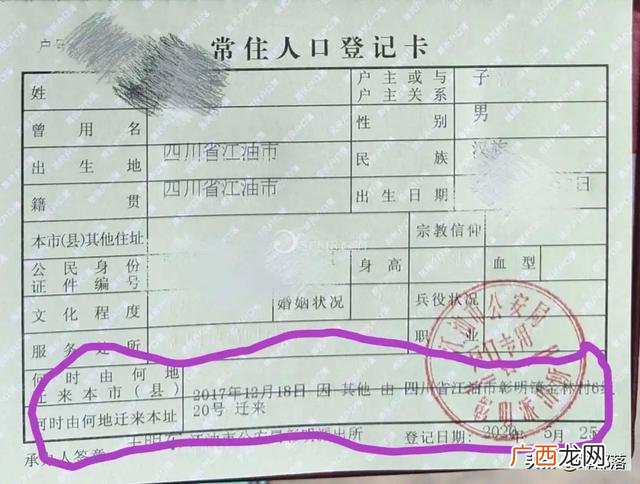 户号
常住人口登记卡
姓
户主或与
户主关系
子
曾用名
性别
男
出生地
四川省江油市
民族
汉族
籍贯
四川省江油市
出生日期
日
本市(县)其他住址
宗教信仰
公民身份
证件编号
身高
血型
文化程度
婚姻状况
兵役状况
服务处所
职业
何时由何地
迁来本市(县)
何时由何地迁来本址
2017年12月18日 因 其他 由 四川省江油市彰明镇金林村6组
20号 迁来
承办人签章
江油市公安局彰明派出所
登记日期:
2020年 5月 25
江油市公安局
户口专用
彰明派出所
头条
广西龙网